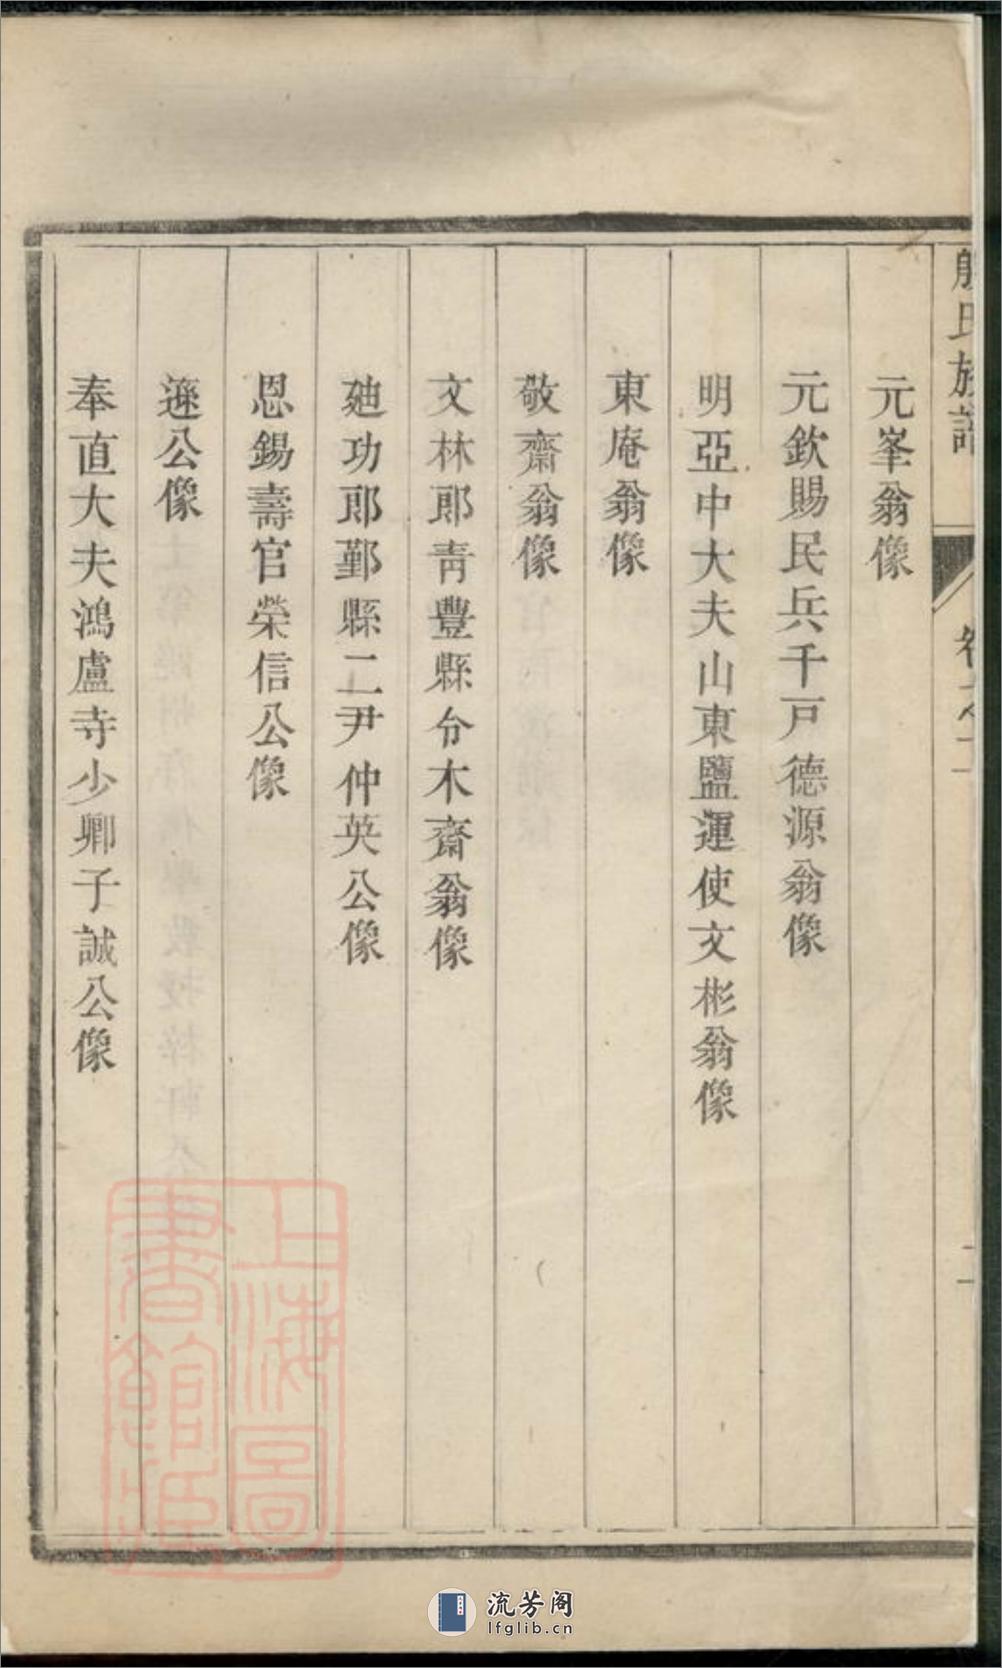 殷氏族譜
卷之一
二
元峯翁像
元欽賜民兵千戸德源翁像
明亞中大夫山東鹽運使文彬翁像
東庵翁像
敬齋翁像
文林郎青豐縣令木齋翁像
廸功郎鄞縣二尹仲英公像
恩錫壽官榮信公像
遜公像
奉直大夫鴻盧寺少卿子誠公像
上海圖書館藏
流芳阁
lfglib.cn